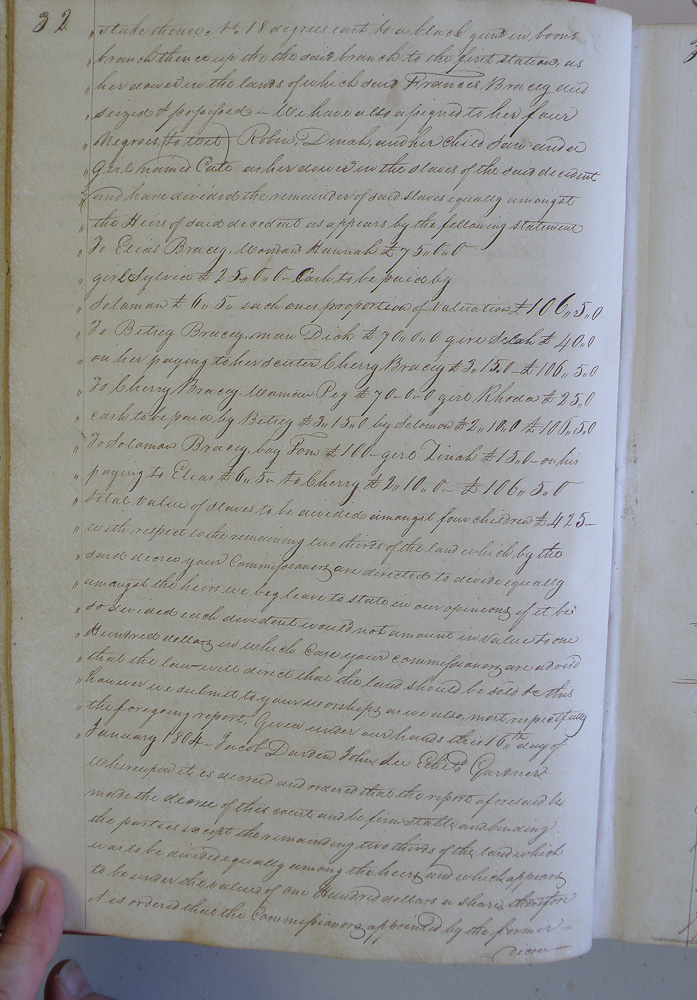 32
" stake thence No. 18 degrees east to a black gum in boons
" branch thence up the the said branch to the first station, as
" her dower in the lands of which said Francis Bracey died
" seized & possessed – We have also assigned to her four
" Negroes, (to wit) Robin, Dinah, and her child Sam and a
" girl named Cate as her dower in the slaves of the said decedent
" and have divided the remainder of said slaves equally amongst
" the Heirs of said decedent as appears by the following statement
" To Elias Bracey, Woman Hannah £75..0..0
" girl Sylvia £25..0..0 – Cash to be paid by
" Solomon £6..5.. each ones proportion of valuation £106..5..0
" To Betsey Bracey. man Dick £70..0..0 girl Selah £40..0
" on her paying to her sister Cherry Bracey £3.15.0 – £106..5.0
" To Cherry Bracey. Woman Peg £70-0-0 girl Rhoda £25.0
" cash to be paid by Betsey £3..15.0 by Solomon £2..10.0 £106..5.0
" To Solomon Bracey, boy Tom £100 – girl Dinah £15.0 – on his
" paying to Elias £6..5 – to Cherry £2..10..0 – £106..5.0
" total value of slaves to be divided amongst four children £425 –
" with respect to the remaining two thirds of the land which by the
" said decree your Commissioners are directed to divide equally
" amongst the heirs we beg leave to state in our opinions if it be
" so divided each dividend would not amount in value to one
" Hundred dollars in which case your commissioners are advised
" that the law will direct that the land should be sold & this
" however we submit to your worships as we also, most respectfully
" the foregoing report. Given under our hands this 16th day of
" January 1804 – Jacob Darden John Lee Gardner
Whereupon it is decreed and ordered that the report aforesaid be
made the decree of this court and be firm stable and binding
the parties except the remaining two thirds of the land which
was to be divided equally among the heirs and which appears
to be under the value of one Hundred dollars a share therefore
it is ordered that the Commissioners appointed by the former –